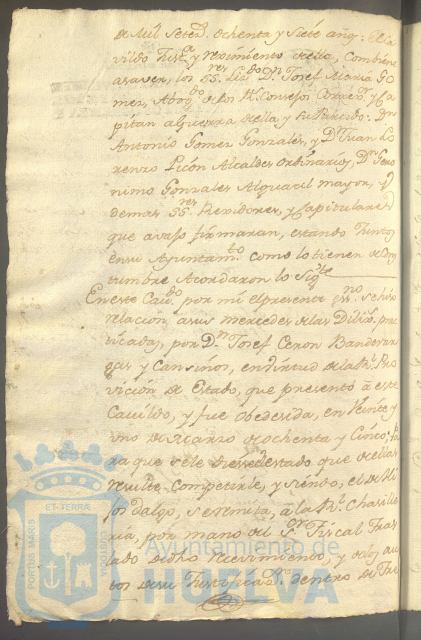 de Mil Seteᵒˢ. ochenta y siete añoˢ: El Ca
vildo Justᵃ y reximiento della, combiene
asaver, los SSʳᵉˢ Licᵈᵒ Dⁿ Josef Maria Go
mez, Abogᵈᵒ de los Rˢ. Consejos Correxᵒʳ y Ca
pitan aGuerra della y su Partido: Dⁿ
Antonio Gomez Gonzales, y Dⁿ Juan Lo
renzo Picon Alcaldes ordinarios, Dⁿ Gero
nimo Gonzales Alguacil mayor, y
demas SSʳᵉˢ Rexidores, y Capitulares
que avajo firmaran, estando Juntos
en su Ayuntamᵗᵒ como lo tienen de Cos
tumbre Acordaron lo Sigᵗᵉ
En este Cavᵈᵒ por mi el presente ssⁿᵒ se hiso
relacion asus mercedes de las Dilixˢ. prac
ticadas, por Dⁿ Josef Ceron Banderar
gas y Cansinos, en virtud de la Rˡ. Pro
vicion de Estado, que presentó á este
Cavildo, y fue obedesida, en Veinte y
uno de Marzo de ochenta y Cinco: Pa
ra que sele diese el estado que de ellas
resulte Competirle, y siendo, el de Hi
jos dalgo, se remita, á la Rˡ. Chansille
ria, por mano del Sᵒʳ Fiscal Tras
lado de dho Recivimiento, y de los au
tos de su Justificaᵒⁿ dentro de Tre
Ayuntamiento de
HUELVA
PORTUS MARIS
ET TERRÆ
CUSTODIA